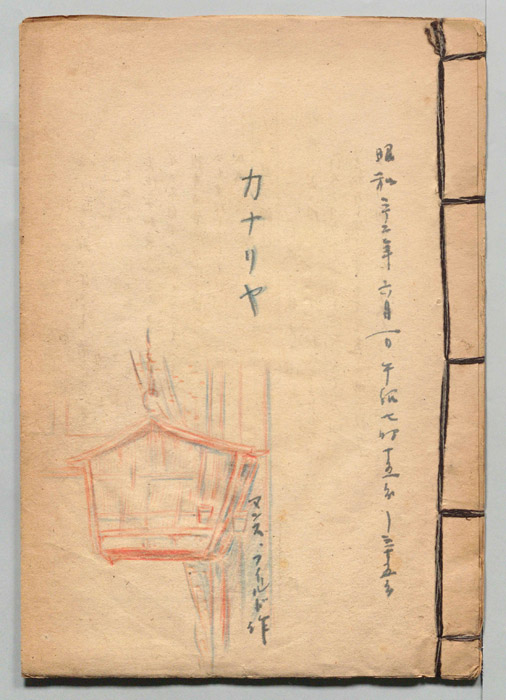 昭和二十二年六月一日午後七時十五分—三十五分
カナリヤ
マンス・フィールド作